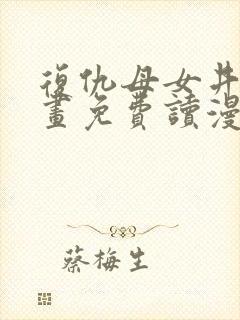 復仇母女丼漫
畫免費讀漫
蔡梅生